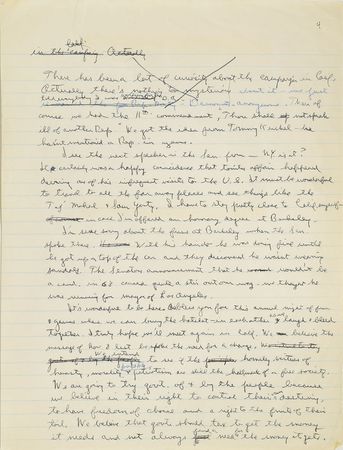 4
in the Calif. campaign Actually
There has been a lot of curiosity about the campaign in Calif.
Actually there's nothing mysterious about it — we just
of course we had the 11th commandment, Thou shalt not speak
ill of another Rep." We got the idea from Tommy Kuchel — he
hasn't mentioned a Rep. in years.
I see the next speaker is the Sen. from — N.Y. is it?
It certainly was a happy coincidence that this affair happened
during one of his infrequent visits to the U.S. It must be wonderful
to travel to all the far away places and see things like the
Taj Mahal & Sam Yorty. I have to stay pretty close to Calif. myself
in case I'm offered an honorary degree at Berkeley.
I'm sorry about the fuss at Berkeley when the Sen.
spoke there. With his hands he was doing fine until
he got up on top of the car and they discovered he wasn't wearing
sandals. The Senators announcement that he wouldn't be
a cand. in 68 caused quite a stir out our way — we thought he
was running for mayor of Los Angeles.
It's wonderful to be here. God bless you for this annual night of fun
& games when we can bury the hatchet — in each other & laugh & bleed
together. I truly hope we'll meet again in Calif. We believe the
message of Nov. 8 last bespoke the need for a change,
to see if the homely virtues of
honesty, morality & patriotism are still the hallmark of a free society.
We are going to try govt. of & by the people because
we believe in their right to control their own destiny,
to have freedom of choice and a right to the fruits of their
toil. We believe that govt. should tax to get the money
it needs and not always find a need for the money it gets.